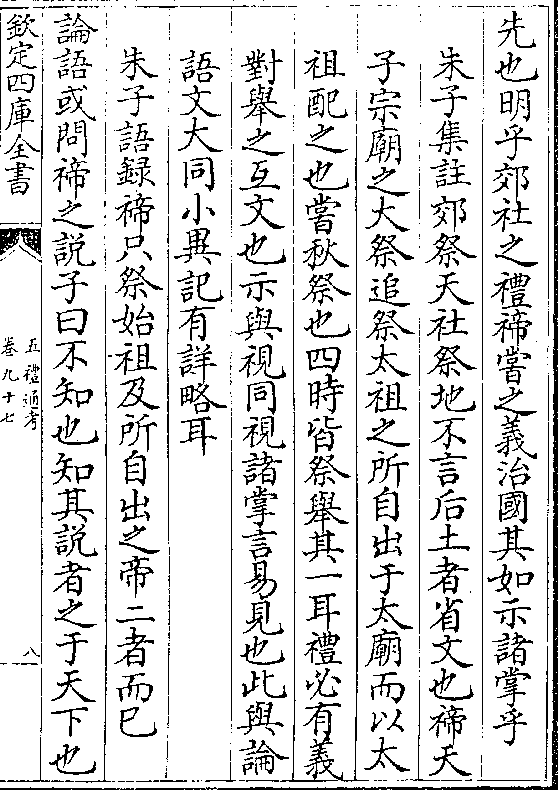 先也明乎郊社之禮禘嘗之義治國其如示諸掌乎
朱子集註郊祭天社祭地不言后土者省文也禘天
子宗廟之大祭追祭太祖之所自出于太廟而以太
祖配之也嘗秋祭也四時皆祭舉其一耳禮必有義
對舉之互文也示與視同視諸掌言易見也此與論
語文大同小異記有詳略耳
朱子語録禘只祭始祖及所自出之帝二者而已
論語或問禘之説子曰不知也知其説者之于天下也
欽定四庫全書
五禮通考
卷九十七
八